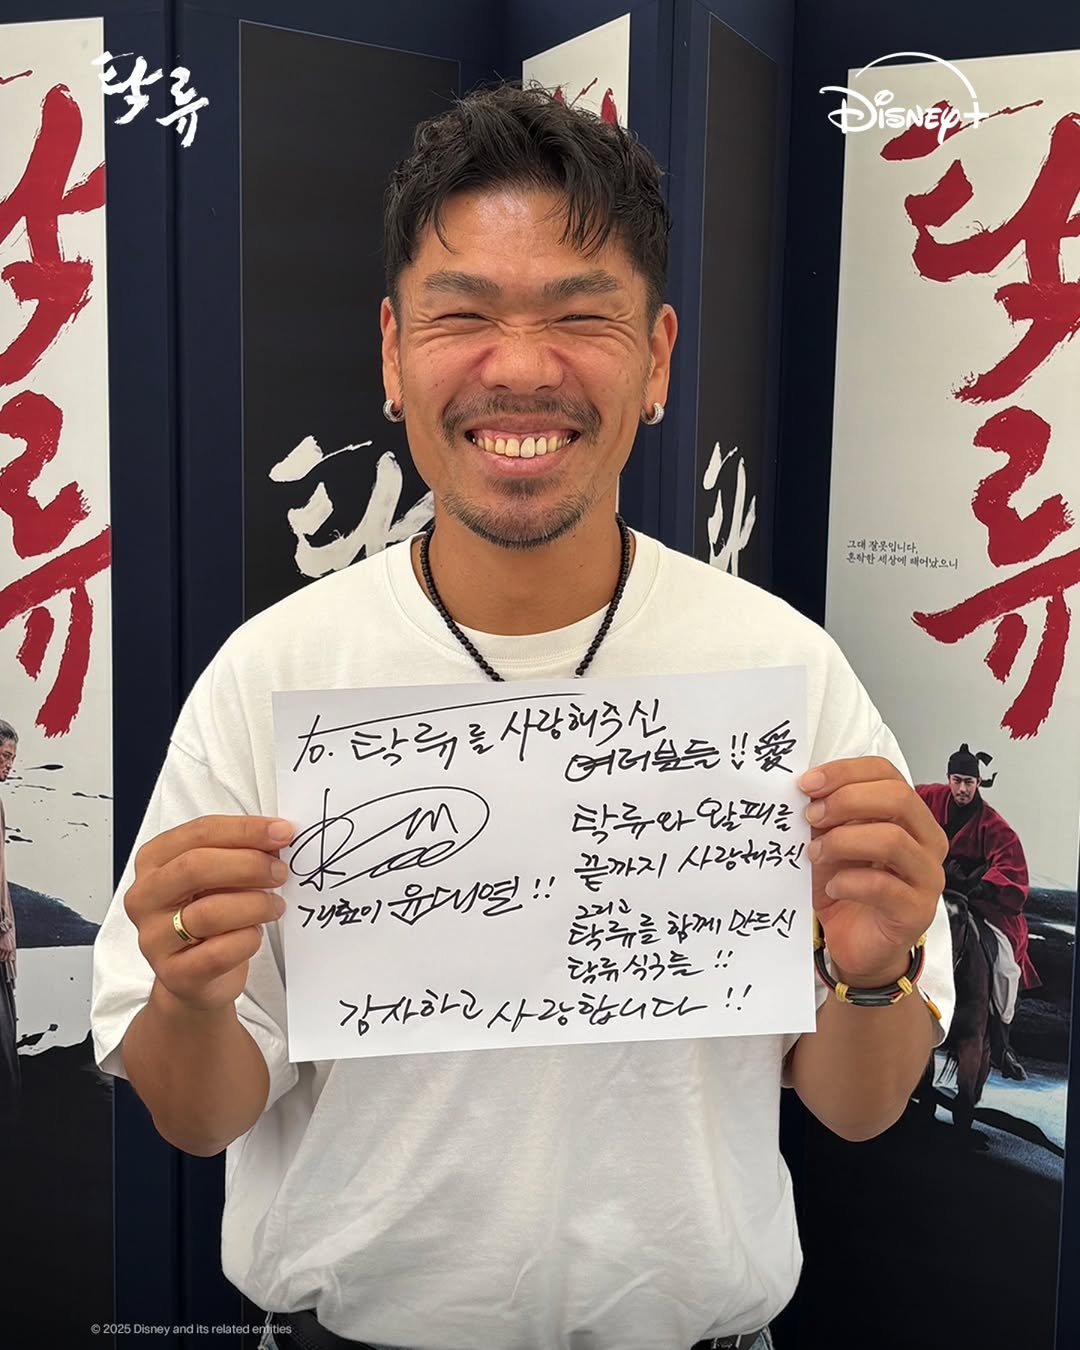 탁류
Disney+
탁류
탁류
탁
탁류
그대 잘못입니다,
혼탁한 세상에 태어났으니
to. 탁류를 사랑해주신
여러분들!! 愛
탁류와 왈패를
끝까지 사랑해주신
그리고
탁류를 함께 만드신
탁류식구들!!
개춘이 윤대열!!
감사하고 사랑합니다!!
© 2025 Disney and its related entities